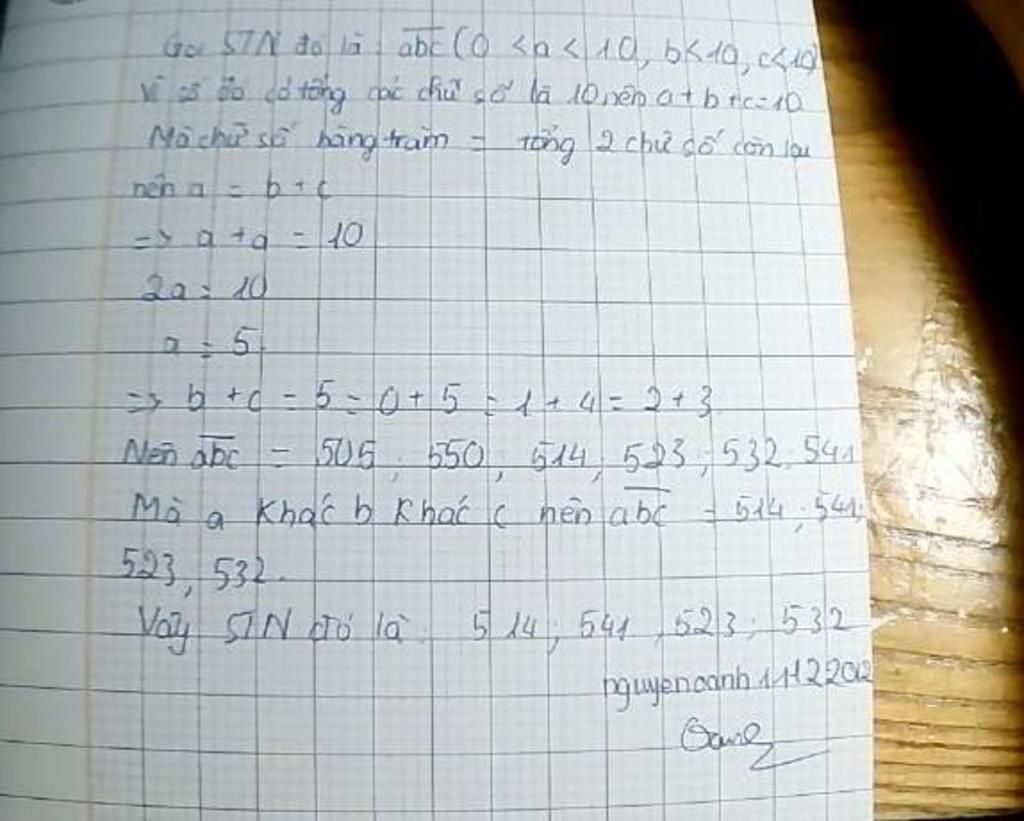 Gọi STN đó là : abc (0 < a < 10, b < 10, c < 10)
Vì số đó có tổng các chữ số là 10 nên a + b + c = 10
Mà chữ số hàng trăm = tổng 2 chữ số còn lại
nên a = b + c
=> a + a = 10
2a = 10
a = 5
=> b + c = 5 = 0 + 5 = 1 + 4 = 2 + 3
Nên abc = 505, 550, 514, 523, 532, 541
Mà a khác b khác c nên abc = 514, 541,
523, 532.
Vậy STN đó là : 514, 541, 523, 532